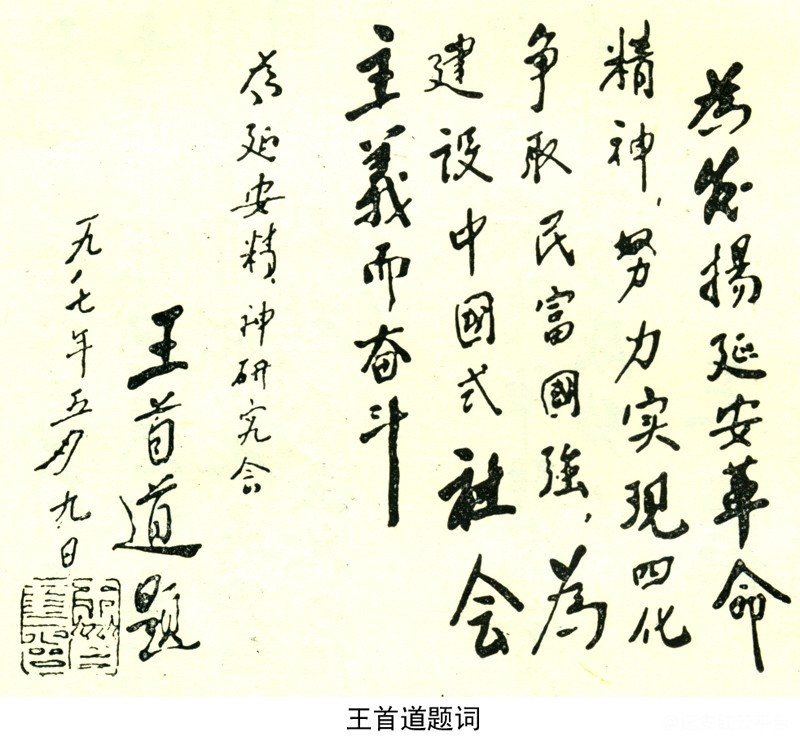 為发揚延安革命
精神，努力实现四化
争取民富國強，為
建設中國式社会
主義而奋斗
為延安精神研究会
王首道题
一九八七年五月九日
王首道题词